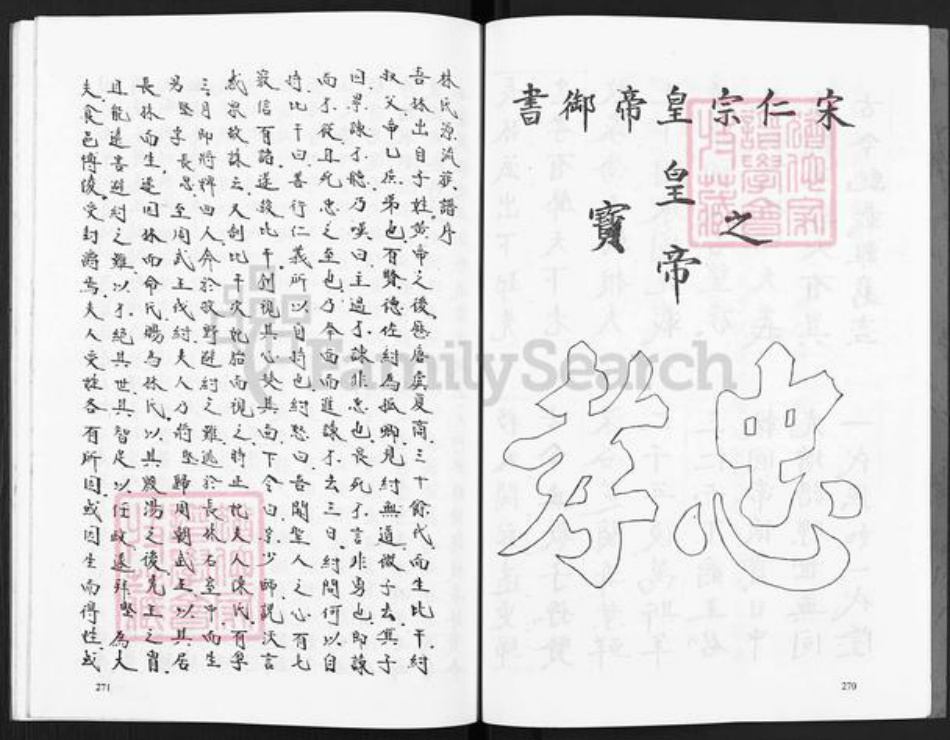 宋仁宗皇帝御書
皇帝
之
寶
忠孝
270
林氏源流序譜序
吾林出自子姓黃帝之後歷唐虞夏商三十餘代而生比干紂
叔父帝乙庶弟也有賢德佐紂為孤卿見紂無道微子去箕子
囚學諫不聽乃嘆曰主過不諫非忠也畏死不言非勇也即諫
而不從且死忠之至也乃令面而進諫不去三日紂問何以自
持比干曰善行仁義所以自持也紂怒曰吾聞聖人之心有七
竅信有諸遂殺比干刳視其心焚其面下令曰 少師說沃言
惑眾故誅之又刳比干次妃胎而視之時正妃夫人陳氏有孕
三月即將婢四人奔於牧野避紂之難逃於長林石室中而生
男堅字長思至周武王伐紂夫人乃將堅歸周朝武王以其居
長林而生遂因林而命氏賜為林氏以其殷湯之後先王之胄
且能遠害避紂之難以不絕其世其智足以任政遂拜堅為大
夫食邑博陵受封爵焉夫人受 各有所因或因生而得姓或
271
FamilySearch